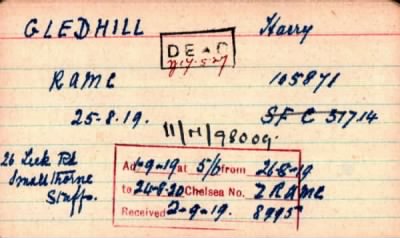 GLEDHILL Harry
DEAD
17-5-27
RAMC 105871
25-8-19. SF C 31714
11/H/98009.
26 Leek Rd
Smallthorne
Staffs.
Ad 1-9-19 at 5/6 from 26-8-19
to 24-8-20 Chelsea No. Z RAMC
Received 2-9-19. 8995